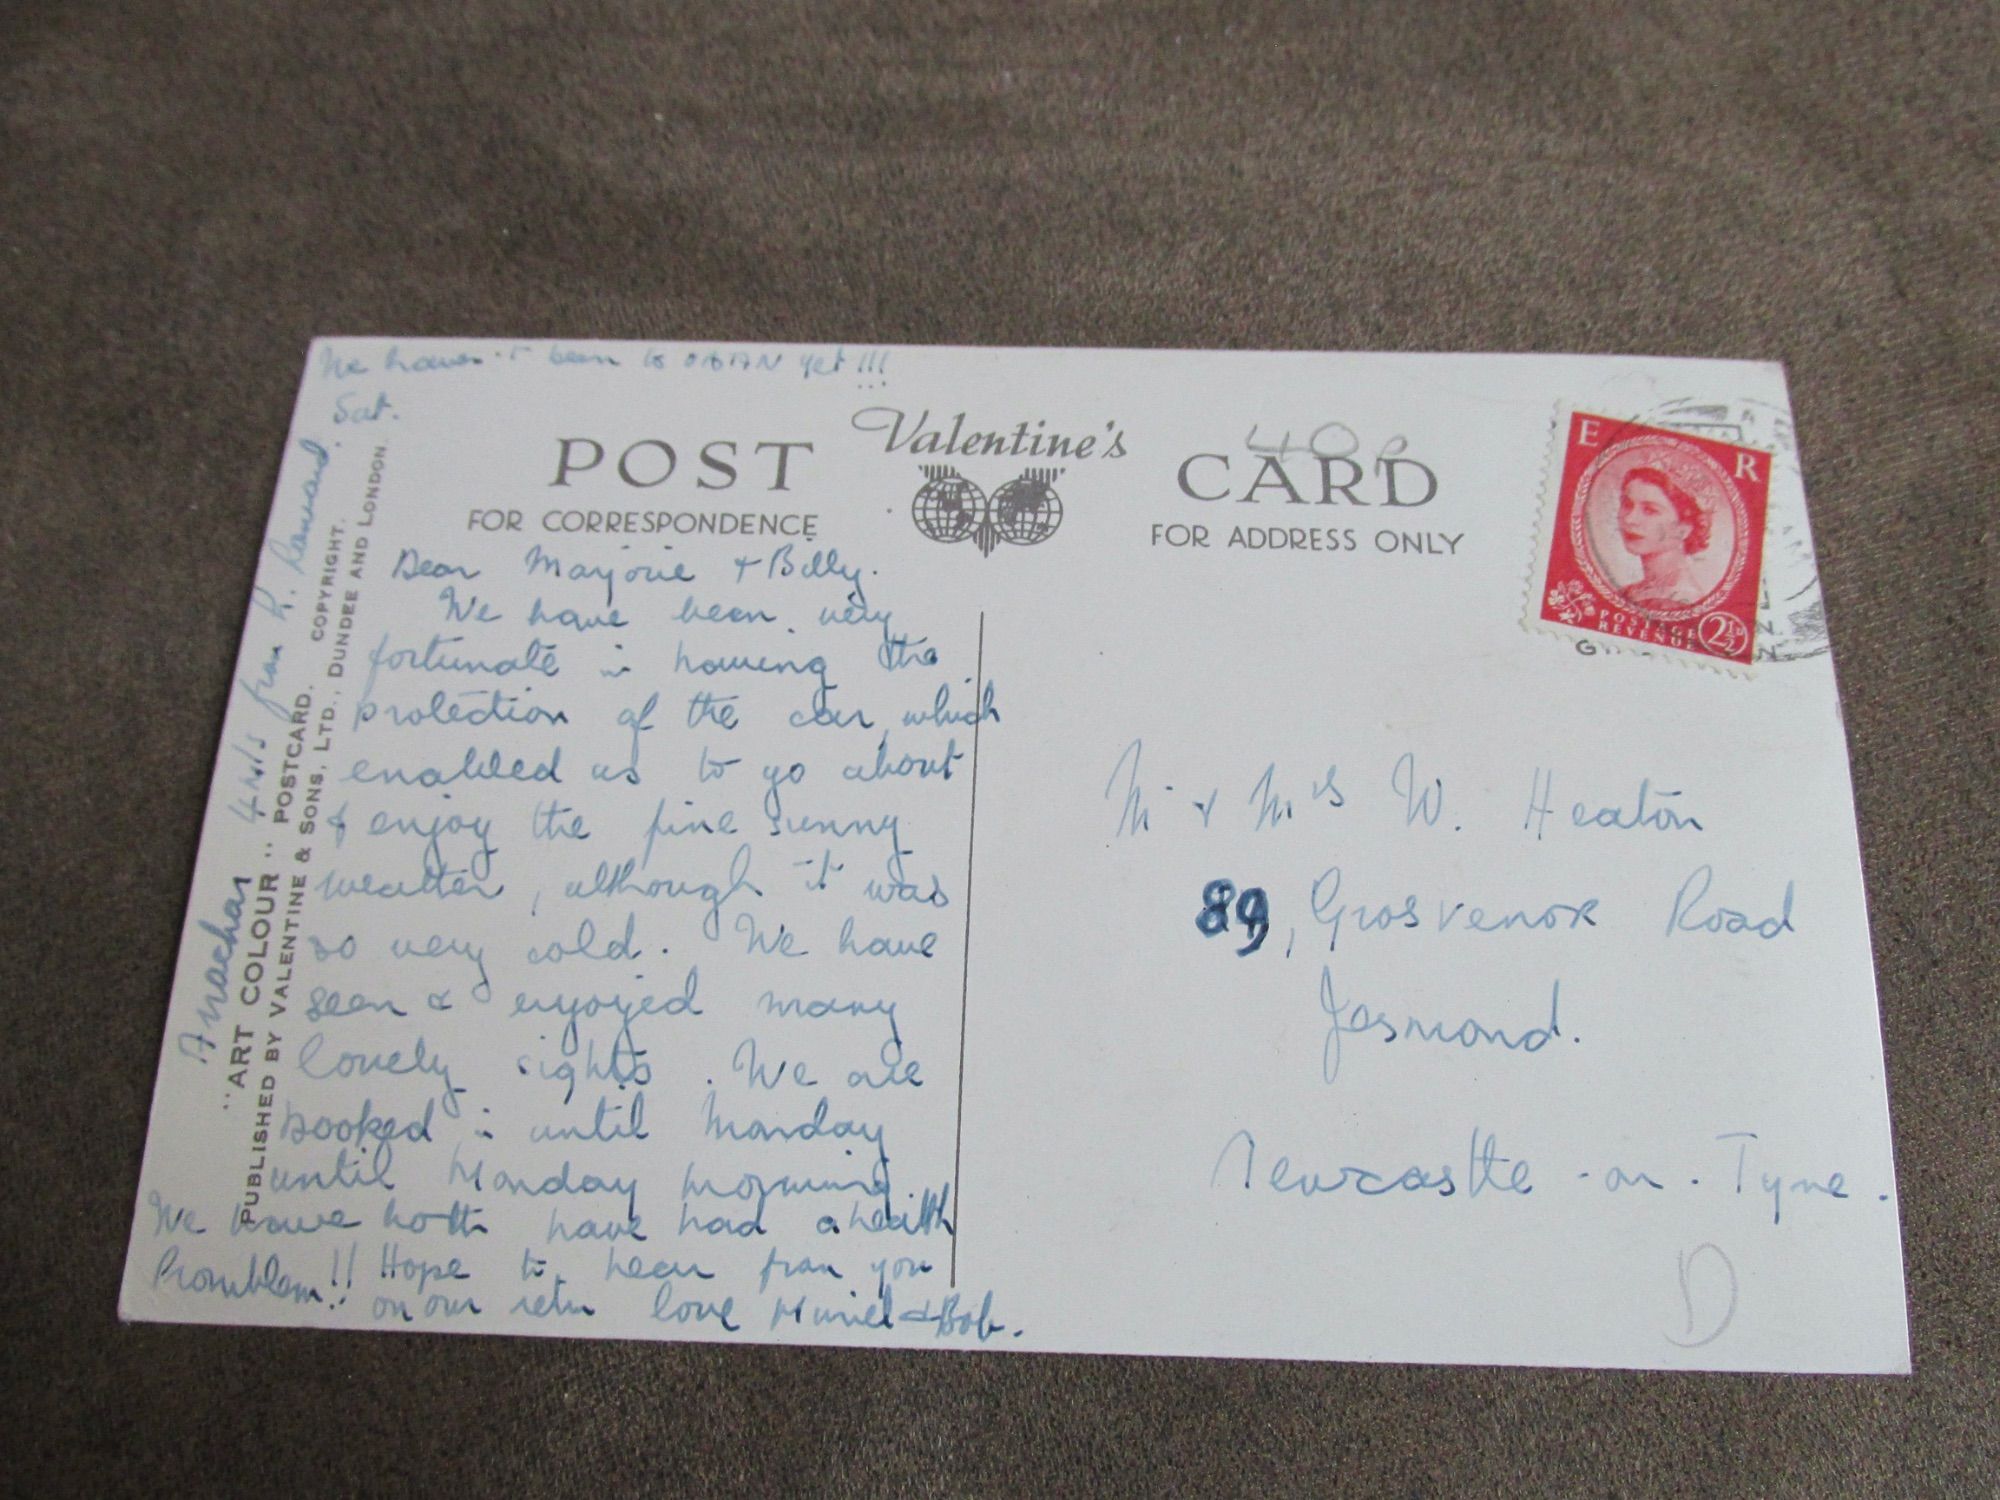 We haven't been to OBAN yet!!!
Sat.
POST Valentine's CARD
FOR CORRESPONDENCE
FOR ADDRESS ONLY
40p
E R
POSTAGE
REVENUE
2½D
Dear Marjorie + Billy.
We have been very
fortunate in having the
protection of the car, which
enabled us to go about
& enjoy the fine sunny
weather, although it was
so very cold. We have
seen & enjoyed many
lovely sights. We are
booked in until Monday
until Monday morning.
We have both have had a health
Promblem!! Hope to hear from you
on our retn love Muriel & Bob.
4 mls from
"ART COLOUR" POSTCARD. COPYRIGHT.
PUBLISHED BY VALENTINE & SONS, LTD., DUNDEE AND LONDON.
Mr & Mrs W. Heaton
89, Grosvenor Road
Jesmond.
Newcastle-on-Tyne.
D